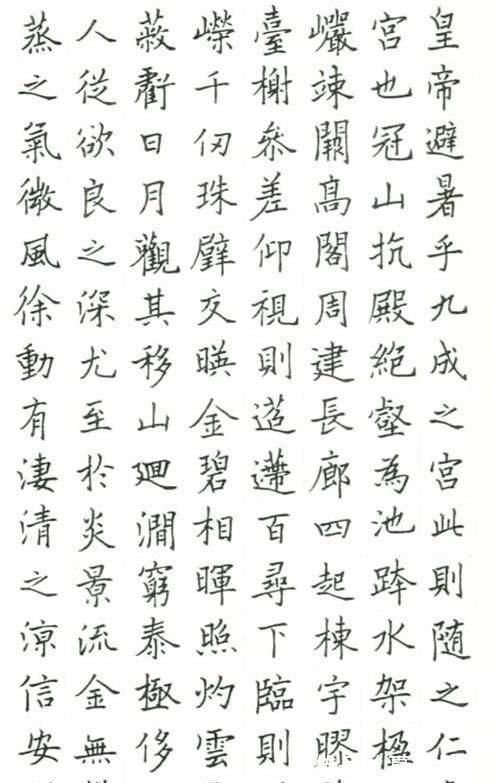 皇帝避暑乎九成之宮此則随之仁
宮也冠山抗殿絕壑為池跨水架楹
巖竦闕高閣周建長廊四起棟宇膠
臺榭參差仰視則迢遰百尋下臨則
嶸千仞珠璧交暎金碧相暉照灼雲
蔽虧日月觀其移山廻澗窮泰極侈
人從欲良之深尤至於炎景流金無
蒸之氣微風徐動有淒清之涼信安